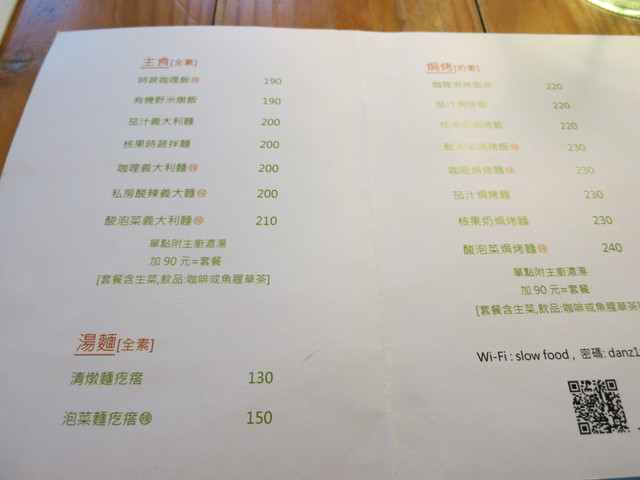 主食[全素]
時蔬咖哩飯辣 190
有機野米燉飯 190
茄汁義大利麵 200
核果時蔬拌麵 200
咖哩義大利麵辣 200
私房酸辣義大麵辣 200
酸泡菜義大利麵辣 210
單點附主廚濃湯
加 90 元=套餐
[套餐含生菜,飲品:咖啡或魚腥草茶]
湯麵[全素]
清燉麵疙瘩 130
泡菜麵疙瘩辣 150
焗烤[奶素]
咖哩焗烤飯辣 220
茄汁焗烤飯 220
核果奶焗烤飯 220
酸泡菜焗烤飯辣 230
咖哩焗烤麵辣 230
茄汁焗烤麵 230
核果奶焗烤麵 230
酸泡菜焗烤麵辣 240
單點附主廚濃湯
加 90 元=套餐
[套餐含生菜,飲品:咖啡或魚腥草茶
Wi-Fi : slow food , 密碼: danz1